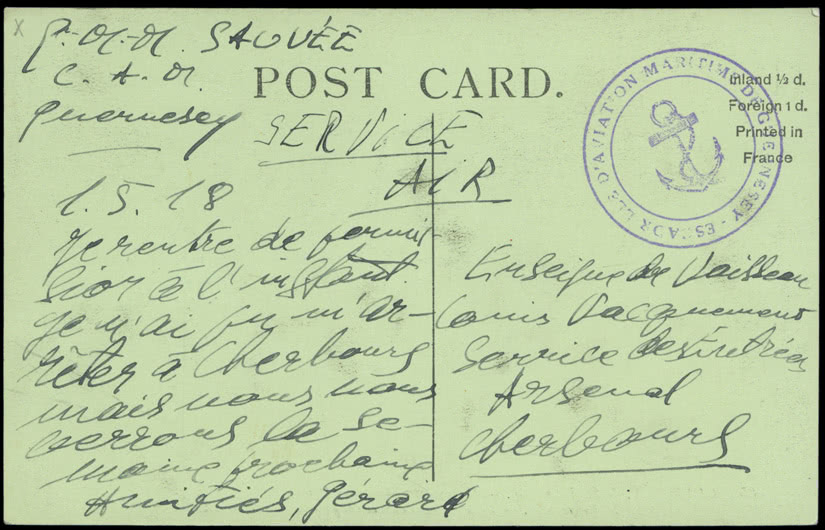 SAUVÉE
C. A. M.
Guernesey
POST CARD.
SERVICE
AIR
Inland ½ d.
Foreign 1 d.
Printed in
France
ESCADRILLE D'AVIATION MARITIME DE GUERNESEY
1. 5. 18
Je rentre de permis-
sion à l'instant
je n'ai pu m'ar-
rêter à Cherbourg
mais nous nous
verrons la se-
maine prochaine
Amitiés, Gérard
Enseigne de Vaisseau
Louis Jacquemont
Service des Entrées
Arsenal
Cherbourg